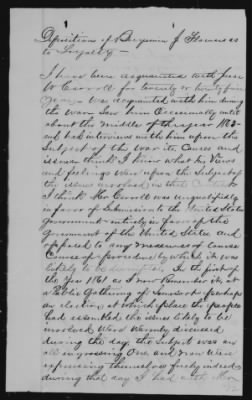 Deposition of Benjamin J
to Loyalty —
I have been acquainted with Jesse
W Correll for twenty or twenty five
years. Was acquainted with him during
the war. Saw him occasionally until
about the middle of the year 1863
and had interviews with him upon the
Subject of the war its Causes and
issues and think I know what his Views
and feelings were upon the Subject of
the issues involved in that
I think Mr Correll was unqualifiedly
in favor of Submission to the United States
government entirely in favor of the
government of the United States and
opposed to any measures of cause
Course of procedure by which it was
likely to be In the first of
the Year 1861 as I now remember it, at
a Public Gathering of perhaps
an election at which place the people
had assembled the issues likely to be
involved were warmly discussed
during the day. the subject was an
all engrossing One and men were
expressing themselves freely indeed
during that day I had with Mr